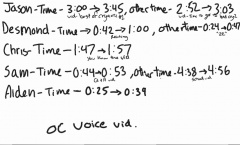 Jason-Time-3:00→3:45, other time-2:52→3:03
Desmond-Time→0:42→1:00, other time-0:24→0:27
Chris-Time-1:47→1:57
Sam-Time-0:44→0:53, other time-4:38→4:56
Aiden-Time-0:25→0:39
OC Voice vid.